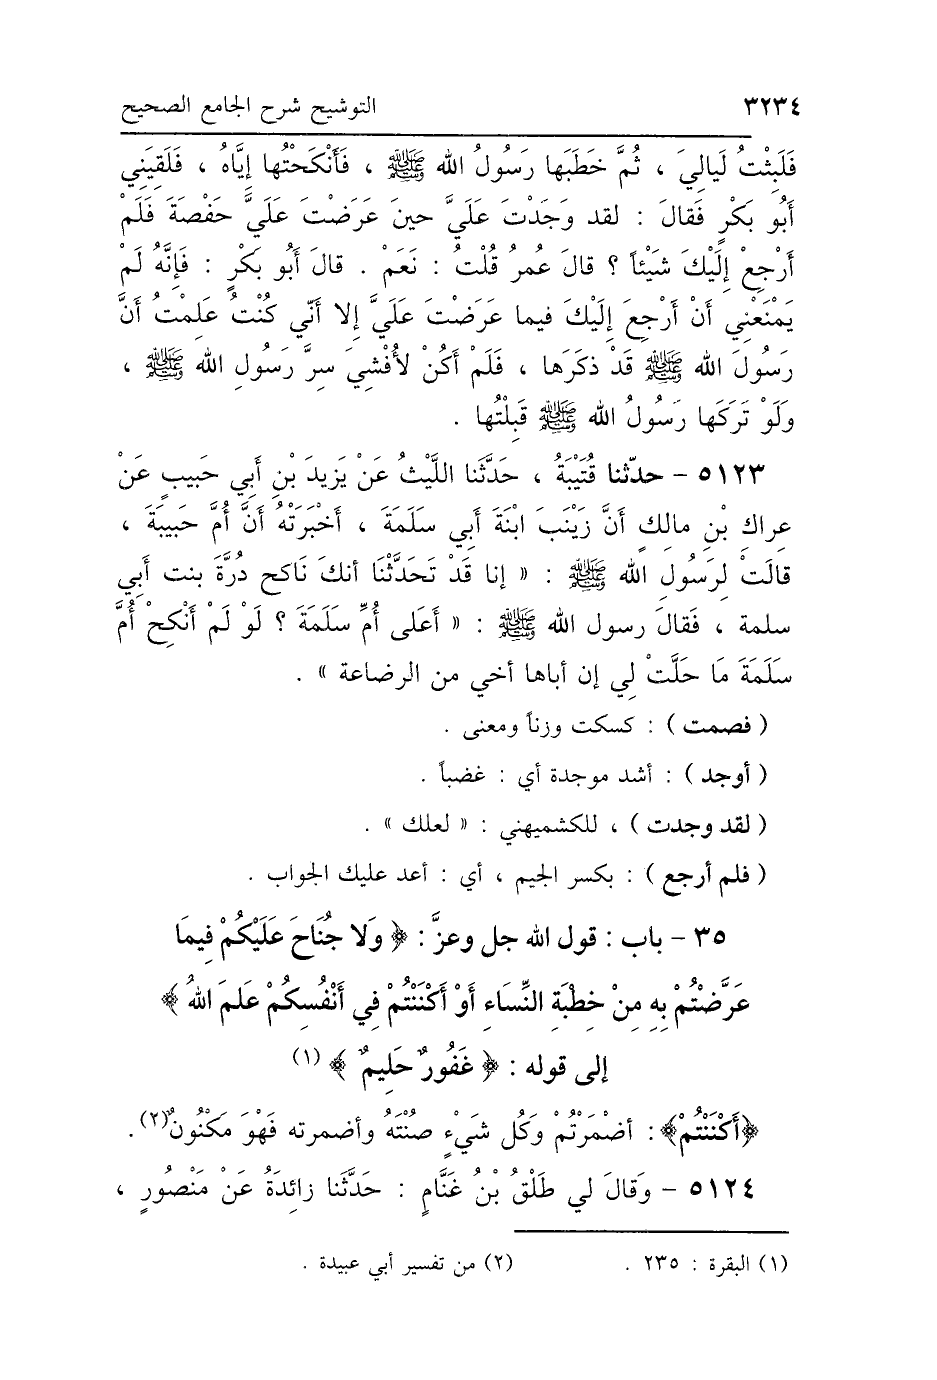 ٣٢٣٤ التوشيح شرح الجامع الصحيح
فَلَبِثْتُ لَيالِيَ ، ثُمَّ خَطَبَها رَسُولُ الله ﷺ ، فَأَنْكَحْتُها إِيَّاهُ ، فَلَقِيَنِي
أَبُو بَكْرٍ فَقالَ : لقد وَجَدْتَ عَلَيَّ حينَ عَرَضْتَ عَلَيَّ حَفْصَةَ فَلَمْ
أَرْجِعْ إِلَيْكَ شَيْئاً ؟ قالَ عُمرُ قُلْتُ : نَعَمْ . قالَ أَبُو بَكْرٍ : فَإِنَّهُ لَمْ
يَمْنَعْنِي أَنْ أَرْجِعَ إِلَيْكَ فيما عَرَضْتَ عَلَيَّ إلا أَنّي كُنْتُ عَلِمْتُ أَنَّ
رَسُولَ الله ﷺ قَدْ ذكَرَها ، فَلَمْ أَكُنْ لأُفْشِيَ سِرَّ رَسُولِ الله ﷺ ،
وَلَوْ تَرَكَها رَسُولُ الله ﷺ قَبِلْتُها .
٥١٢٣ - حدّثنا قُتَيْبَةُ ، حَدَّثَنا اللَّيْثُ عَنْ يَزِيدَ بْنِ أَبي حَبيبٍ عَنْ
عِراكِ بْنِ مالِكٍ أَنَّ زَيْنَبَ ابْنَةَ أَبي سَلَمَةَ ، أَخْبَرَتْهُ أَنَّ أُمَّ حَبيبَةَ ،
قالَتْ لِرَسُولِ الله ﷺ : « إنا قَدْ تَحَدَّثْنَا أنكَ نَاكح دُرَّةَ بنت أَبي
سلمة ، فَقالَ رسول الله ﷺ : « أَعَلى أُمِّ سَلَمَةَ ؟ لَوْ لَمْ أَنْكِحْ أُمَّ
سَلَمَةَ مَا حَلَّتْ لِي إن أباها أخي من الرضاعة » .
( فصمت ) : كسكت وزناً ومعنى .
( أوجد ) : أشد موجدة أي : غضباً .
( لقد وجدت ) ، للكشميهني : « لعلك » .
( فلم أرجع ) : بكسر الجيم ، أي : أعد عليك الجواب .
٣٥ - باب : قول الله جل وعزَّ : ﴿ وَلا جُنَاحَ عَلَيْكُمْ فِيمَا
عَرَّضْتُمْ بِهِ مِنْ خِطْبَةِ النِّسَاءِ أَوْ أَكْنَنْتُمْ فِي أَنْفُسِكُمْ عَلِمَ اللهُ ﴾
إلى قوله : ﴿ غَفُورٌ حَلِيمٌ ﴾ (١)
﴿أَكْنَنْتُمْ﴾ : أضْمَرْتُمْ وَكُل شَيْءٍ صُنْتَهُ وأضمرته فَهْوَ مَكْنُونٌ(٢) .
٥١٢٤ - وَقالَ لي طَلْقُ بْنُ غَنَّامٍ : حَدَّثَنا زائِدَةُ عَنْ مَنْصُورٍ ،
(١) البقرة : ٢٣٥ . (٢) من تفسير أبي عبيدة .